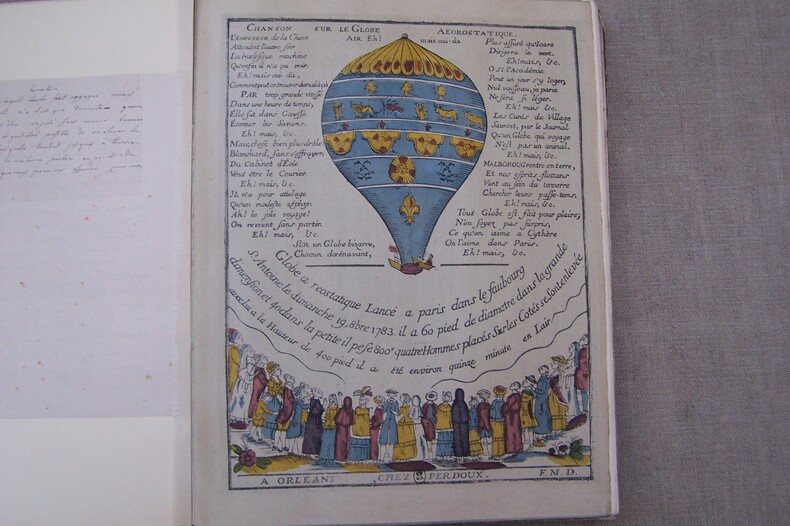 CHANSON SUR LE GLOBE AEOROSTATIQUE.
AIR Eh! mais oui-da
L'EMPEREUR de la Chine
Attendoit l'autre soir
La burlesque machine
Qu'enfin il n'a pu voir.
Eh! mais oui-da,
PAR trop grande vitesse
Dans une heure de temps,
Elle fut dans Gonesse
Etonner les Savans.
Eh! mais, &c.
Mais, chose bien plus drôle
Blanchard, sans s'effrayer,
Du Cabinet d'Eole
Veut être le Courier
Eh! mais, &c.
IL n'a pour attelage
Qu'un modeste zéphyr.
Ah! le joli voyage!
On revient sans partir
Eh! mais, &c.
SUR un Globe bizarre,
Chacun dorénavant,
Plus assuré qu'Icare
Dirigera le vent.
Eh! mais, &c.
O si l'Académie
Peut un jour s'y loger,
Nul vaisseau, je parie
Ne sera si léger.
Eh! mais, &c.
Les Curés de Village
Sauront, par le Journal
Qu'un Globe qui voyage
N'est pas un animal.
Eh! mais, &c.
MALBOROUG rentre en terre,
Et nos esprits flottans
Vont au sein du tonnerre
Chercher leurs passe-tens.
Eh! mais, &c.
Tout Globe est fait pour plaire;
N'en soyez pas surpris,
Ce qu'on aime à Cythère
On l'aime dans Paris.
Eh! mais, &c.
Globe a reostatique Lancé a paris dans le faubourg
St Antoine le dimanche 19, 8bre 1783. il a 60 pied de diametre dans la grande
dimension et 40 dans la petite il pese 800# quatre Hommes placés Sur les Cotés se sont enlevée
avec lui a la Hauteur de 400 pied il a été environ quinze minute en Lair.
A ORLEANS CHEZ PERDOUX. F.M.D.